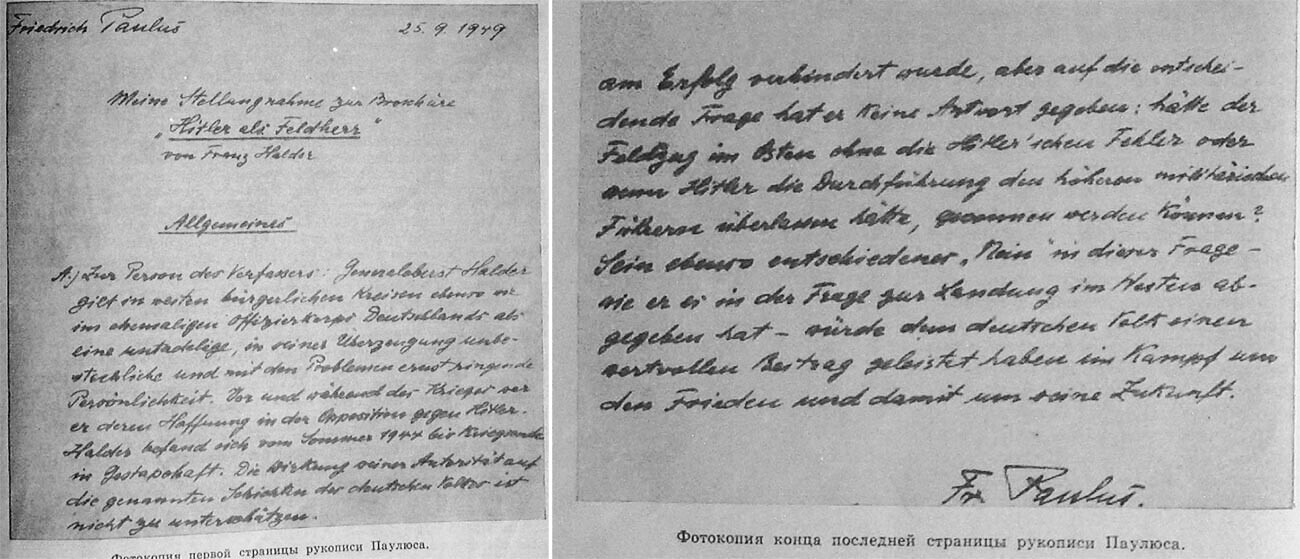 Friedrich Paulus 25. 9. 1949
Meine Stellungnahme zur Broschüre
„Hitler als Feldherr"
von Franz Halder
Allgemeines
A.) Zur Person des Verfassers: Generaloberst Halder
gilt in weiten bürgerlichen Kreisen ebenso wie
im ehemaligen Offizierkorps Deutschlands als
eine untadelige, in seiner Überzeugung unbe-
stechliche und mit den Problemen ernst ringende
Persönlichkeit. Vor und während des Krieges war
er deren Hoffnung in der Opposition gegen Hitler.
Halder befand sich vom Sommer 1944 bis Kriegsende
in Gestapohaft. Die Wirkung seiner Autorität auf
die genannten Schichten des deutschen Volkes ist
nicht zu unterschätzen.
Фотокопия первой страницы рукописи Паулюса.
am Erfolg verhindert wurde, aber auf die entschei-
dende Frage hat er keine Antwort gegeben: hätte der
Feldzug im Osten ohne die Hitler'schen Fehler oder
wenn Hitler die Durchführung den höheren militärischen
Führern überlassen hätte, gewonnen werden können?
Sein ebenso entschiedenes „Nein" in dieser Frage –
wie er es in der Frage zur Landung im Westen ab-
gegeben hat – würde dem deutschen Volk einen
wertvollen Beitrag geleistet haben im Kampf um
den Frieden und damit um seine Zukunft.
Fr. Paulus.
Фотокопия конца последней страницы рукописи Паулюса.